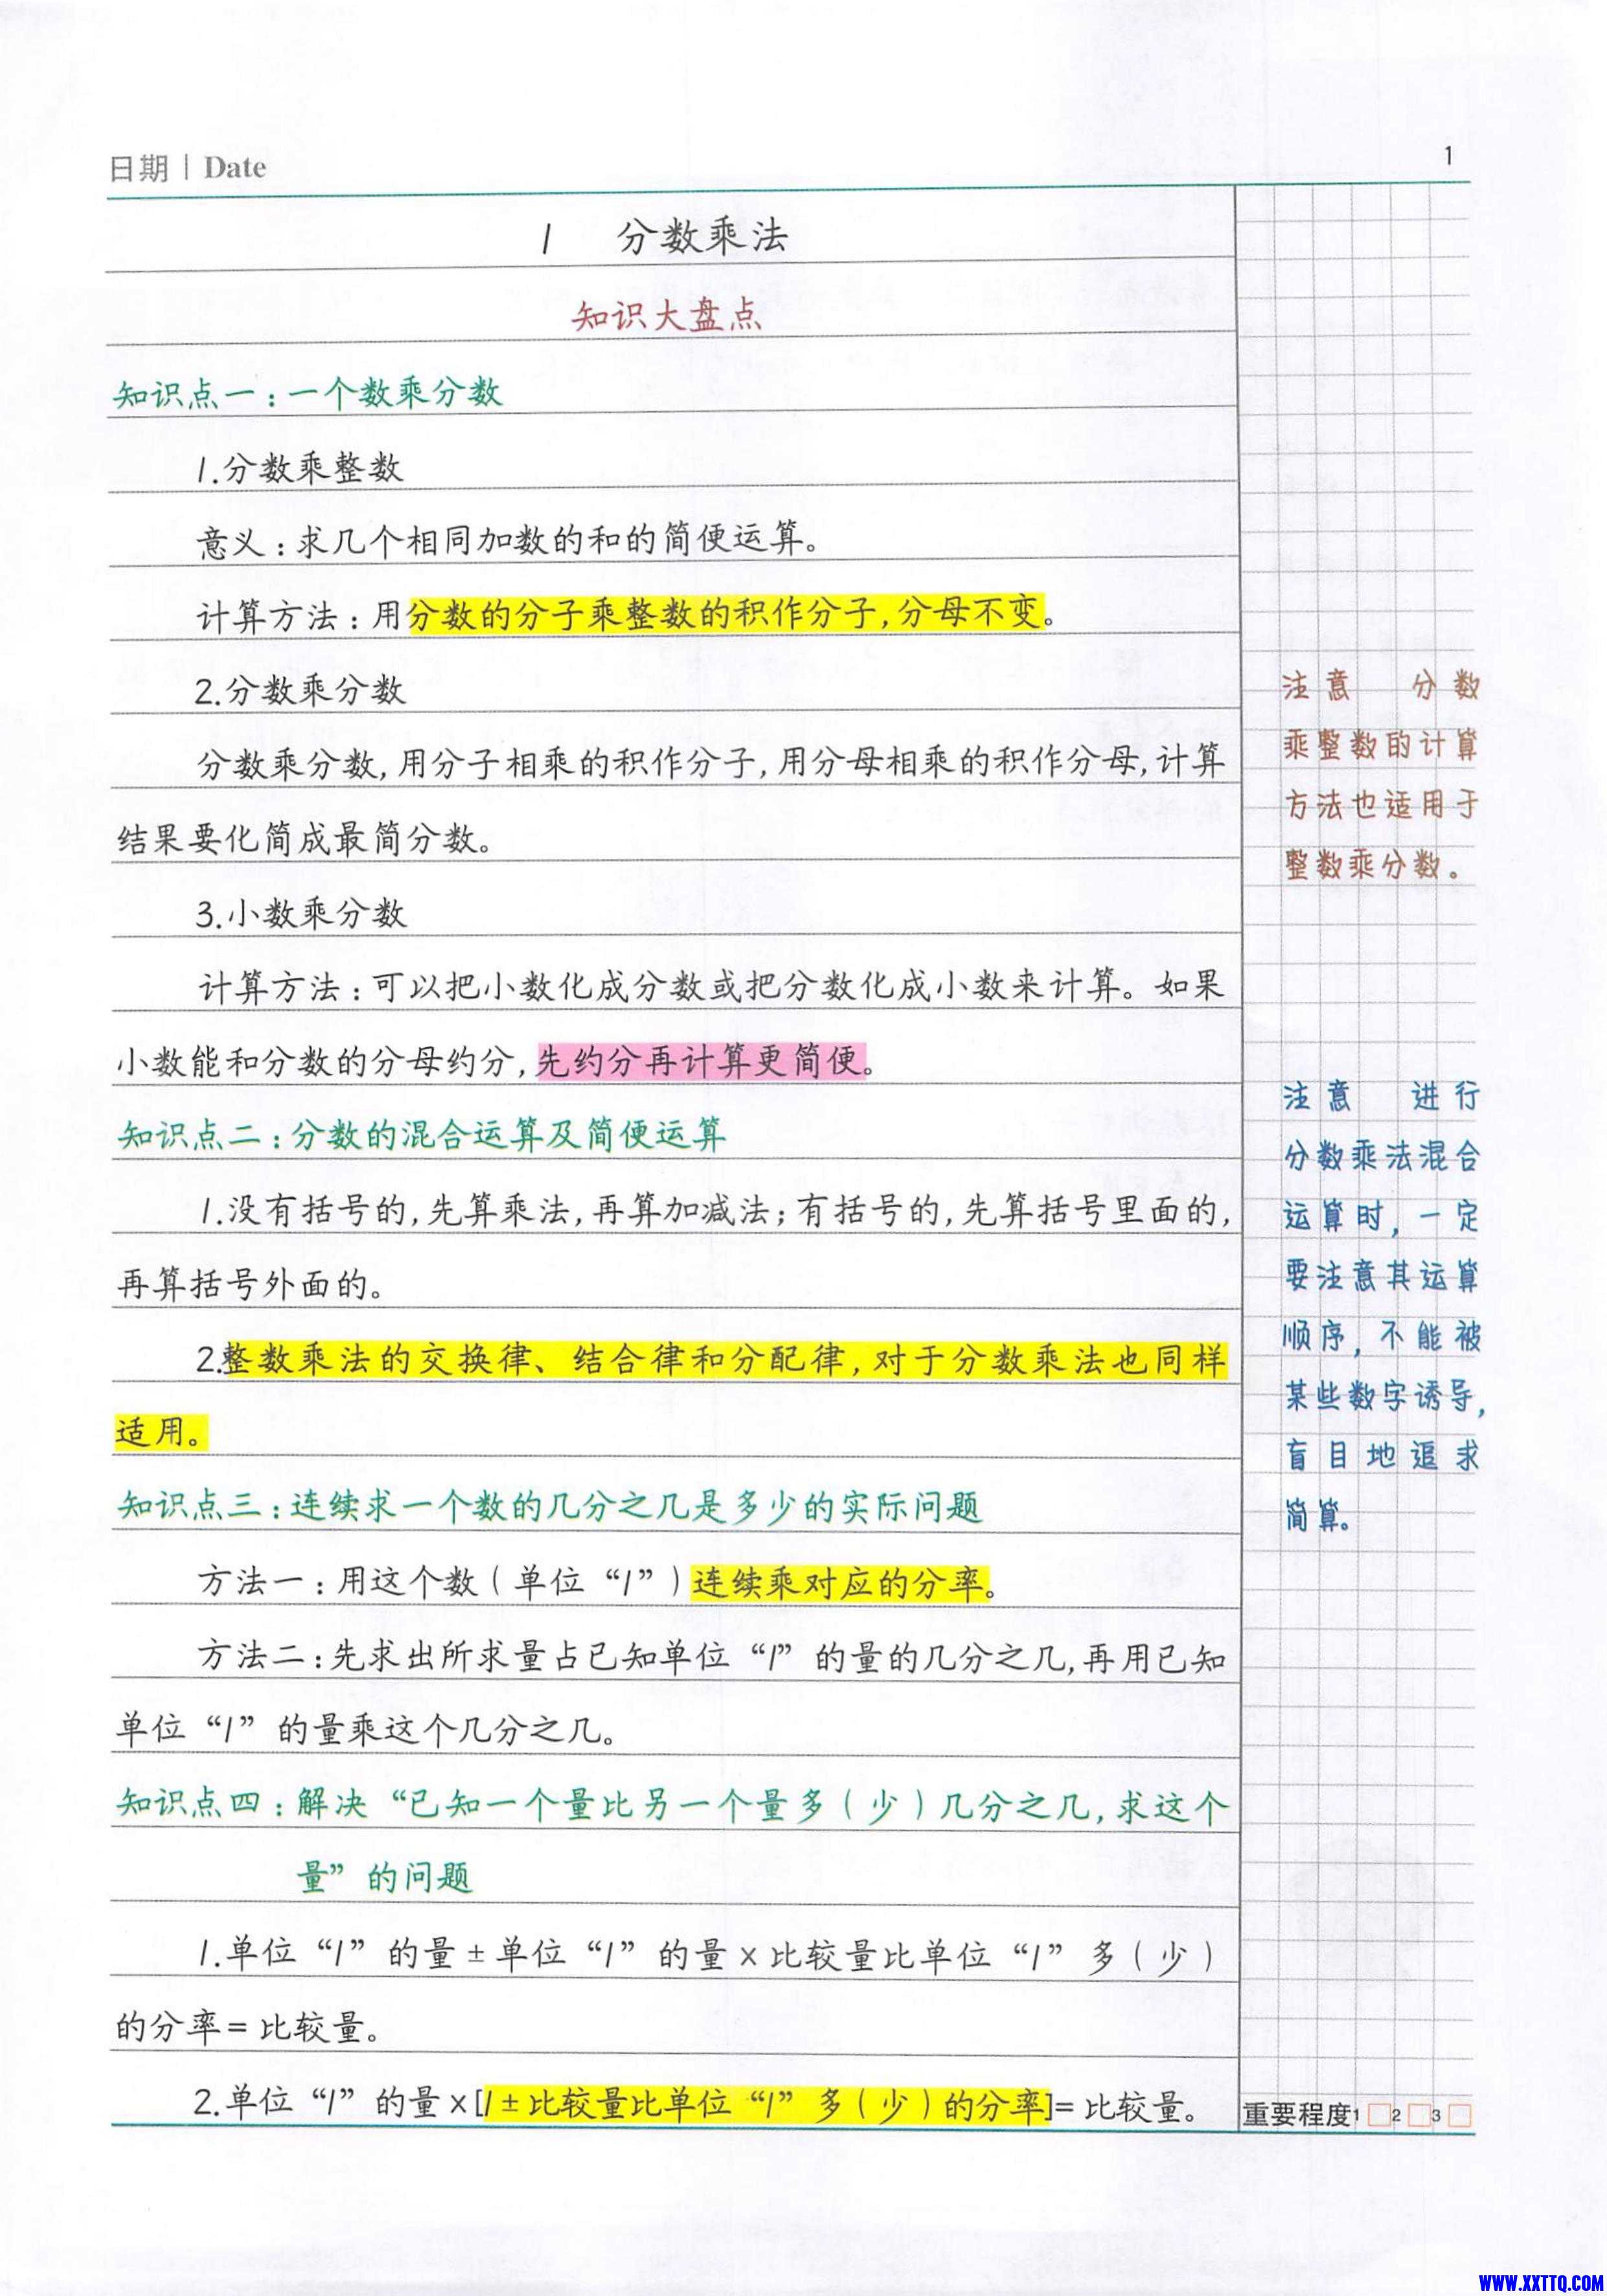 日期 | Date
1
1 分数乘法
知识大盘点
知识点一：一个数乘分数
1.分数乘整数
意义：求几个相同加数的和的简便运算。
计算方法：用分数的分子乘整数的积作分子,分母不变。
2.分数乘分数
分数乘分数,用分子相乘的积作分子,用分母相乘的积作分母,计算
结果要化简成最简分数。
3.小数乘分数
计算方法：可以把小数化成分数或把分数化成小数来计算。如果
小数能和分数的分母约分,先约分再计算更简便。
知识点二：分数的混合运算及简便运算
1.没有括号的,先算乘法,再算加减法；有括号的,先算括号里面的,
再算括号外面的。
2.整数乘法的交换律、结合律和分配律,对于分数乘法也同样
适用。
知识点三：连续求一个数的几分之几是多少的实际问题
方法一：用这个数（单位“1”）连续乘对应的分率。
方法二：先求出所求量占已知单位“1”的量的几分之几,再用已知
单位“1”的量乘这个几分之几。
知识点四：解决“已知一个量比另一个量多（少）几分之几,求这个
量”的问题
1.单位“1”的量±单位“1”的量×比较量比单位“1”多（少）
的分率=比较量。
2.单位“1”的量×[1±比较量比单位“1”多（少）的分率]=比较量。
注意 分数
乘整数的计算
方法也适用于
整数乘分数。
注意 进行
分数乘法混合
运算时,一定
要注意其运算
顺序,不能被
某些数字诱导,
盲目地追求
简算。
重要程度1□2□3□
WWW.XXTTQ.COM